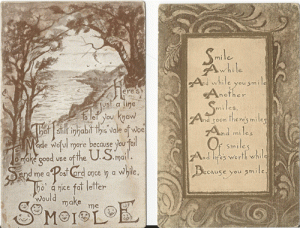 Here's
just a line
to let you know
That I still inhabit this vale of woe
Made woful more because you fail
To make good use of the U.S. mail.
Send me a Post Card once in a while,
Tho' a nice fat letter
would make me
SMILE
Smile
Awhile
And while you smile
Another
Smiles
And soon there's miles
And miles
Of smiles
And life's worth while
Because you smile.